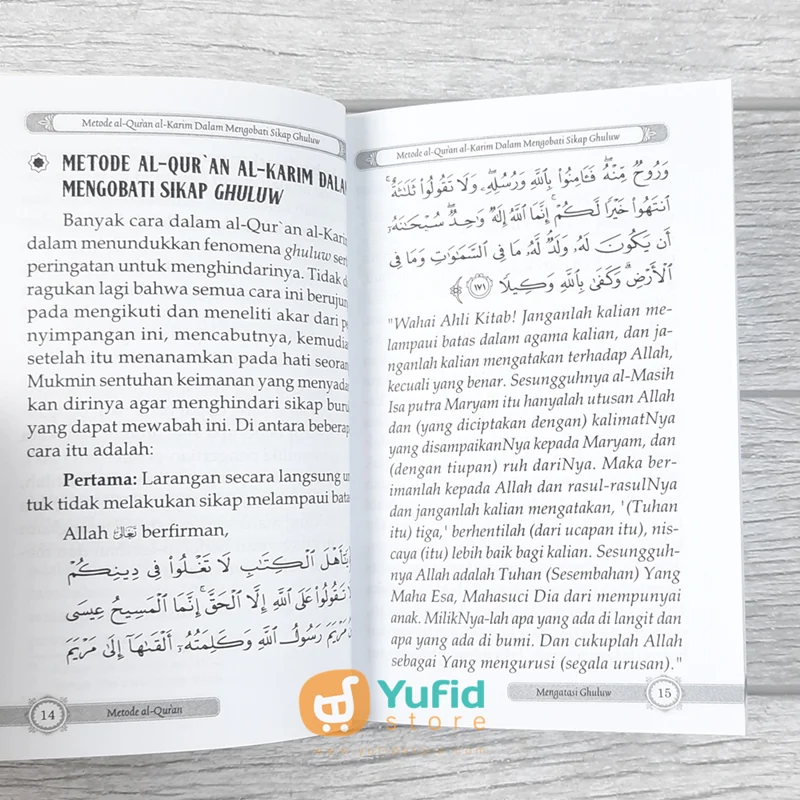 Metode al-Qur`an al-Karim Dalam Mengobati Sikap Ghuluw
METODE AL-QUR`AN AL-KARIM DALAM
MENGOBATI SIKAP GHULUW
Banyak cara dalam al-Qur`an al-Karim
dalam menundukkan fenomena ghuluw
peringatan untuk menghindarinya. Tidak
ragukan lagi bahwa semua cara ini berujun
pada mengikuti dan meneliti akar dari
nyimpangan ini, mencabutnya, kemudia
setelah itu menanamkan pada hati seoran
Mukmin sentuhan keimanan yang menyada
kan dirinya agar menghindari sikap buru
yang dapat mewabah ini. Di antara beberap
cara itu adalah:
Pertama: Larangan secara langsung un
tuk tidak melakukan sikap melampaui bata
Allah تعالى berfirman,
يَٰٓأَهْلَ ٱلْكِتَٰبِ لَا تَغْلُوا۟ فِى دِينِكُمْ
وَلَا تَقُولُوا۟ عَلَى ٱللَّهِ إِلَّا ٱلْحَقَّ ۚ إِنَّمَا ٱلْمَسِيحُ عِيسَى
ٱبْنُ مَرْيَمَ رَسُولُ ٱللَّهِ وَكَلِمَتُهُۥٓ أَلْقَىٰهَآ إِلَىٰ مَرْيَمَ
14
Metode al-Qur`an
Metode al-Qur`an al-Karim Dalam Mengobati Sikap Ghuluw
وَرُوحٌ مِّنْهُ ۖ فَـَٔامِنُوا۟ بِٱللَّهِ وَرُسُلِهِۦ ۖ وَلَا تَقُولُوا۟ ثَلَٰثَةٌ ۚ
ٱنتَهُوا۟ خَيْرًا لَّكُمْ ۚ إِنَّمَا ٱللَّهُ إِلَٰهٌ وَٰحِدٌ ۖ سُبْحَٰنَهُۥٓ
أَن يَكُونَ لَهُۥ وَلَدٌ ۘ لَّهُۥ مَا فِى ٱلسَّمَٰوَٰتِ وَمَا فِى
ٱلْأَرْضِ ۗ وَكَفَىٰ بِٱللَّهِ وَكِيلًا ١٧١
"Wahai Ahli Kitab! Janganlah kalian me-
lampaui batas dalam agama kalian, dan ja-
nganlah kalian mengatakan terhadap Allah,
kecuali yang benar. Sesungguhnya al-Masih
Isa putra Maryam itu hanyalah utusan Allah
dan (yang diciptakan dengan) kalimatNya
yang disampaikanNya kepada Maryam, dan
(dengan tiupan) ruh dariNya. Maka ber-
imanlah kepada Allah dan rasul-rasulNya
dan janganlah kalian mengatakan, '(Tuhan
itu) tiga,' berhentilah (dari ucapan itu), nis-
caya (itu) lebih baik bagi kalian. Sesungguh-
nya Allah adalah Tuhan (Sesembahan) Yang
Maha Esa, Mahasuci Dia dari mempunyai
anak. MilikNya-lah apa yang ada di langit dan
apa yang ada di bumi. Dan cukuplah Allah
sebagai Yang mengurusi (segala urusan)."
Mengatasi Ghuluw
15
Yufid
store